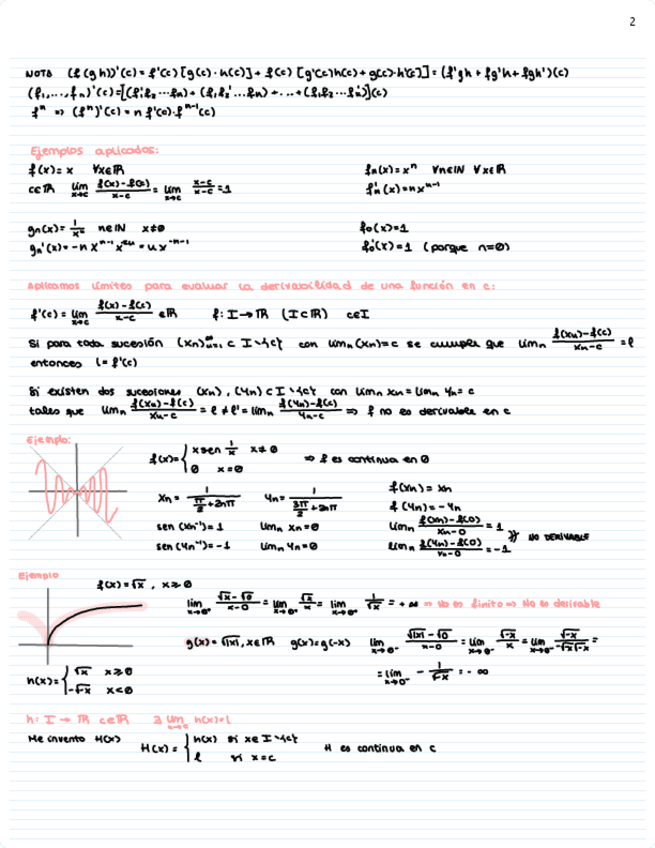 2
NOTA (f(gh))'(c) = f'(c)[g(c)·h(c)] + f(c)[g'(c)h(c) + g(c)·h'(c)] = (f'gh + fg'h + fgh')(c)
(f₁,...,fₙ)'(c) = [(f₁'f₂...fₙ) + (f₁f₂'...fₙ) + ... + (f₁f₂...fₙ')](c)
fⁿ => (fⁿ)'(c) = n f'(c)·fⁿ⁻¹(c)
Ejemplos aplicados:
f(x) = x ∀x∈ℝ fₙ(x) = xⁿ ∀n∈ℕ ∀x∈ℝ
c∈ℝ lim x→c (f(x)-f(c))/(x-c) = lim x→c (x-c)/(x-c) = 1 fₙ'(x) = nxⁿ⁻¹
gₙ(x) = 1/xⁿ n∈ℕ x≠0 f₀(x) = 1
f₀'(x) = 1 (porque n=0)
Aplicamos límites para evaluar la derivabilidad de una función en c:
f'(c) = lim x→c (f(x)-f(c))/(x-c) ∈ℝ f: I→ℝ (I⊂ℝ) c∈I
Si para toda sucesión (xₙ)ₙ₌₁^∞ ⊂ I\{c} con limₙ(xₙ)=c se cumple que limₙ (f(xₙ)-f(c))/(xₙ-c) = l
entonces l = f'(c)
Si existen dos sucesiones (xₙ), (yₙ) ⊂ I\{c} con limₙ xₙ = limₙ yₙ = c
tales que limₙ (f(xₙ)-f(c))/(xₙ-c) = l ≠ l' = limₙ (f(yₙ)-f(c))/(yₙ-c) => f no es derivable en c
Ejemplo:
f(x) = { x sen 1/x x≠0 => f es continua en 0
0 x=0
xₙ = 1/(π/2+2nπ) yₙ = 1/(3π/2+2nπ) f(xₙ) = xₙ
f(yₙ) = -yₙ
sen(xₙ⁻¹) = 1 limₙ xₙ = 0 limₙ (f(xₙ)-f(0))/(xₙ-0) = 1
sen(yₙ⁻¹) = -1 limₙ yₙ = 0 limₙ (f(yₙ)-f(0))/(yₙ-0) = -1 NO DERIVABLE
Ejemplo
f(x) = √x, x≥0
lim x→0⁺ (√x-√0)/(x-0) = lim x→0⁺ √x/x = lim x→0⁺ 1/√x = +∞ => No es finito => No es derivable
g(x) = √|x|, x∈ℝ g(x)=g(-x) lim x→0⁻ (√|x|-√0)/(x-0) = lim x→0⁻ √-x/x = lim x→0⁻ √-x/(-√-x√-x) =
h(x) = { √x x≥0
-√-x x<0
= lim x→0⁻ -1/√-x = -∞
h: I→ℝ c∈ℝ ∃ lim x→c h(x)=l
Me invento H(x) H(x) = { h(x) si x∈I\{c} H es continua en c
l si x=c